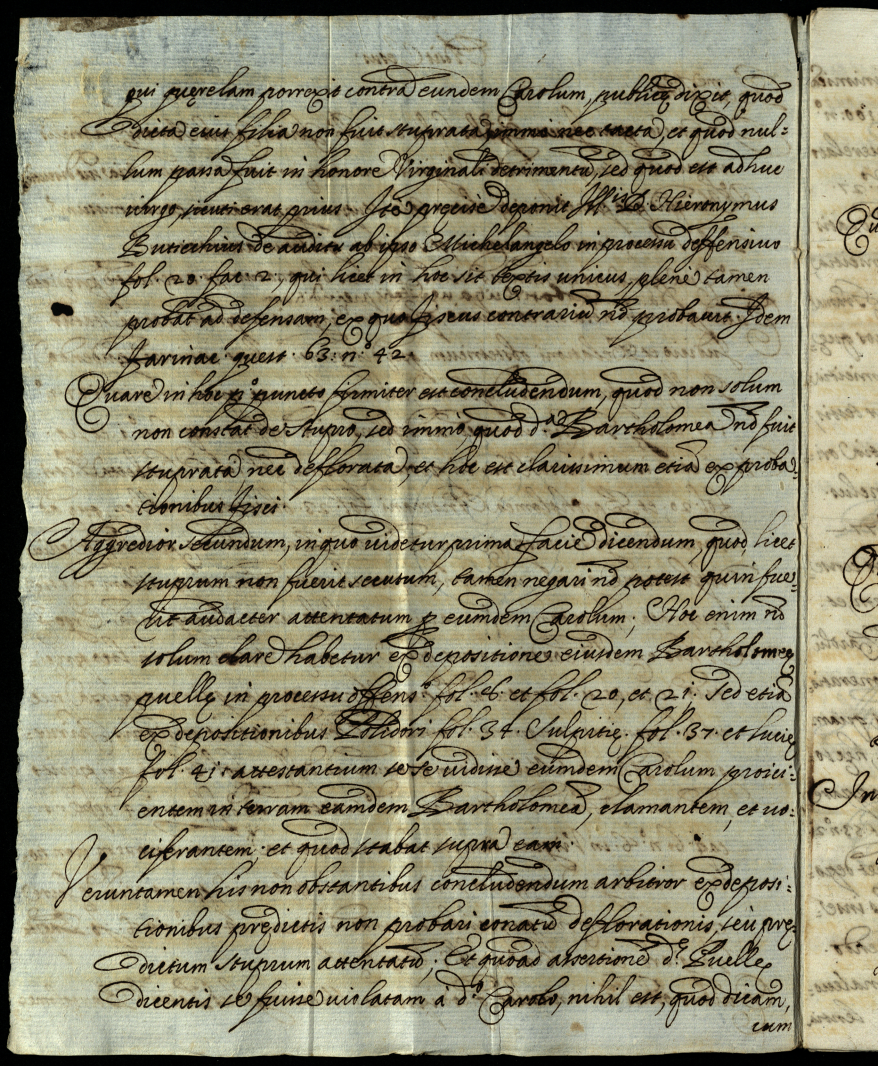 qui querelam porrexit contra eundem Carolum, publice dixit, quod
dicta eius filia non fuit stuprata immo nec tacta, et quod nul=
lum passa fuit in honore Virginali detrimentũ, sed quod est adhuc
virgo, sicuti erat prius. Itẽ precise deponit D. Hieronymus
Buticchius de auditu ab ipso Michelangelo in processu deffensiuo
fol. 20. fac. 2., qui licet in hoc sit testis unicus, plenè tamen
probat ad defensam, ex quo fiscus contrariũ nõ probauit. Idem
farinac. quest. 63. nº 42.
Quare in hoc pº puncto firmiter est concludendum, quod non solum
non constat de stupro, sed immò, quod dª Bartholomea nõ fuit
stuprata, nec defflorata, et hoc est clarissimum etiã ex proba=
tionibus fisci.
Aggredior secundum, in quo uidetur prima facie dicendum, quod licet
stuprum non fuerit secutum, tamen negari nõ potest quin fue=
rit audacter attentatum ꝑ eumdem Carolum; Hoc enim nõ
solum clare habetur ex depositione eiusdem Bartholomeę
puellę in processu offens.º fol. 6. et fol. 20, et 21. Sed etiã
ex depositionibus Polidori fol. 34. Sulpitię. fol. 37. et Lucię
fol. 41. attestantium sese uidisse eumdem Carolum proici=
entem in terram eamdem Bartholomeã, clamantem, et uo=
ciferantem, et quod stabat supra eam
Veruntamen his non obstantibus concludendum arbitror ex deposi=
tionibus prędictis non probari conatũ deflorationis, seù pre=
dictum stuprum attentatũ; Et quoad assertionẽ dę Puellę
dicentis se fuisse uiolatam à dº Carolo, nihil est, quod dicam,
cum